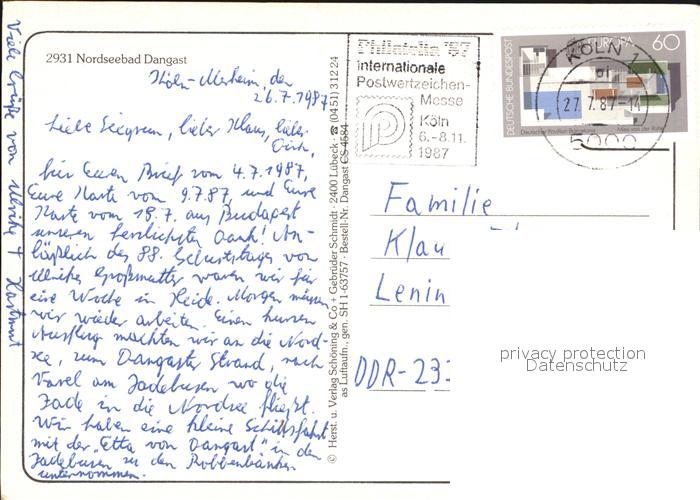 2931 Nordseebad Dangast
Köln-Merheim, den
26.7.1987
Liebe Siegrun, lieber Klaus, lieber
für Euren Brief vom 4.7.1987,
Eure Karte vom 9.7.87, und Eure
Karte vom 18.7. aus Budapest
unseren herzlichsten Dank! An-
läßlich des 88. Geburtstages von
Ulrikes Großmutter waren wir für
eine Woche in Heide. Morgen müssen
wir wieder arbeiten. Einen kurzen
Ausflug machten wir an die Nord-
see, zum Dangaster Strand, nach
Varel am Jadebusen wo die
Jade in die Nordsee fließt.
Wir haben eine kleine Schiffsfahrt
mit der "Etta von Dangast" in den
Jadebusen zu den Robbenbänken
unternommen.
Viele Grüße von Ulrike + Hartmut
© Herst. u. Verlag Schöning & Co + Gebrüder Schmidt · 2400 Lübeck · ☎ (0451) 31224
as Luftaufn., gen. SH 1-63757 · Bestell-Nr. Dangast CS 4584
Philatelia '87
Internationale
Postwertzeichen-
Messe
Köln
6.-8.11.
1987
DEUTSCHE BUNDESPOST
EUROPA
60
Deutscher Pavillon Barcelona
Mies van der Rohe
KÖLN 1
27.7.87-14
5000
Familie
Klau
Lenin
DDR-23
privacy protection
Datenschutz